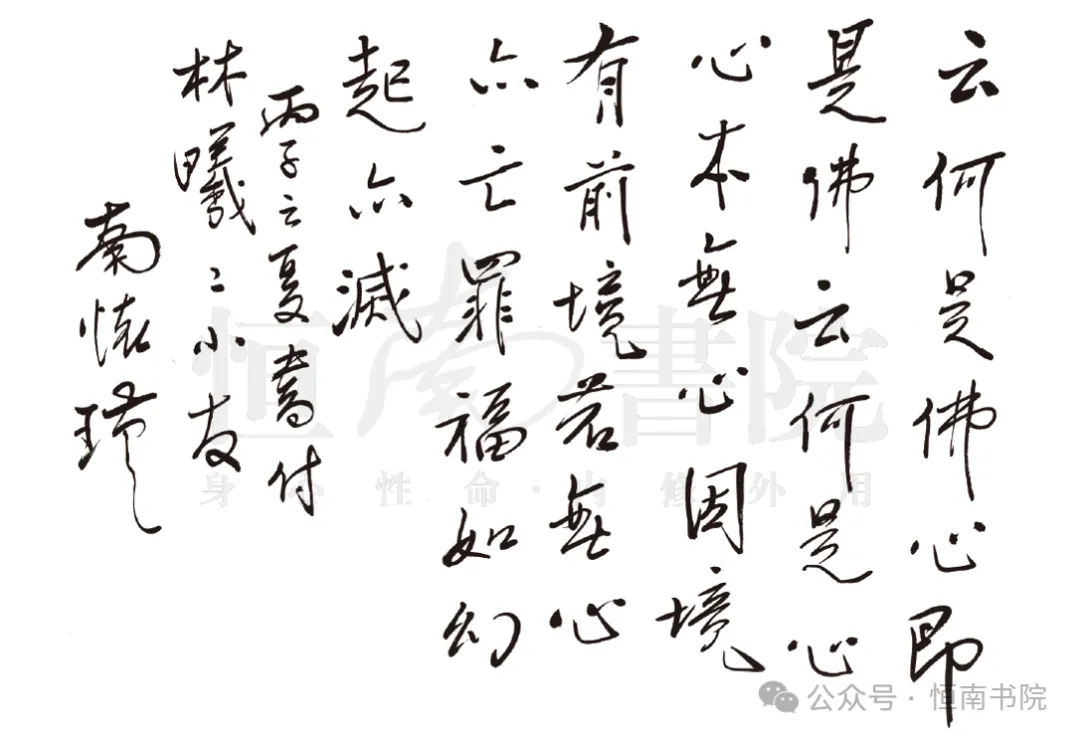 云何是佛心即
是佛云何是心
心本無心因境
有前境若無心
亦亡罪福如幻
起亦滅
丙子之夏書付
林曦〻小友
南懷瑾
恒南書院
身心性命·内修外用
公众号 · 恒南书院